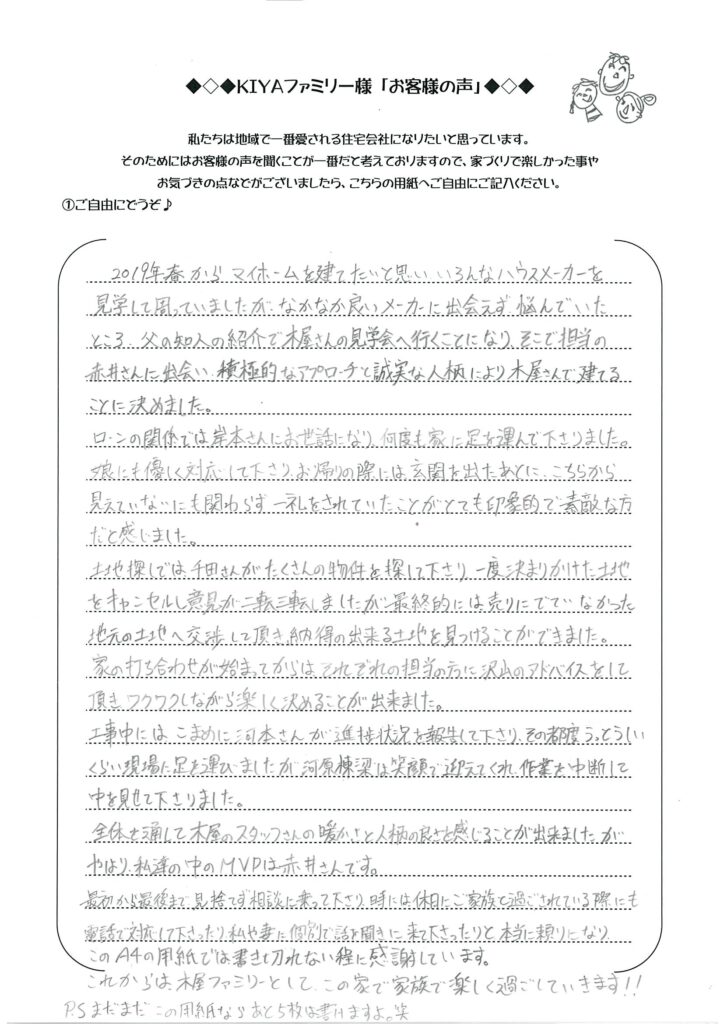 ◆◇◆KIYAファミリー様「お客様の声」◆◇◆
私たちは地域で一番愛される住宅会社になりたいと思っています。
そのためにはお客様の声を聞くことが一番だと考えておりますので、家づくりで楽しかった事や
お気づきの点などがございましたら、こちらの用紙へご自由にご記入ください。
①ご自由にどうぞ♪
2019年春から マイホームを建てたいと思い、いろんなハウスメーカーを
見学して周っていましたが、なかなか良いメーカーに出会えず 悩んでいた
ところ、父の知人の紹介で木屋さんの見学会へ行くことになり、そこで担当の
赤井さんに出会い、積極的なアプローチと誠実な人柄により 木屋さんで建てる
ことに決めました。
ローンの関係では岸本さんにお世話になり、何度も家に足を運んで下さりました。
娘にも優しく対応して下さり、お帰りの際には玄関を出たあとに、こちらから
見えていないにも関わらず 一礼をされていたことがとても印象的で素敵な方
だと感じました。
土地探しでは、千田さんがたくさんの物件を探して下さり、一度決まりかけた土地
をキャンセルし意見が二転三転しましたが、最終的には売りにでていなかった
地元の土地へ交渉して頂き、納得の出来る土地を見つけることができました。
家の打ち合わせが始まってからは、それぞれの担当の方に沢山のアドバイスをして
頂き、ワクワクしながら楽しく決めることが出来ました。
工事中には、こまめに河本さんが進捗状況を報告して下さり、その都度うっとうしい
くらい現場に足を運びましたが、河原棟梁は笑顔で迎えてくれ、作業を中断して
中を見せて下さりました。
全体を通して木屋のスタッフさんの暖かさと人柄の良さを感じることが出来ましたが
やはり、私達の中のMVPは赤井さんです。
最初から最後まで見捨てず相談に乗って下さり、時には休日にご家族と過ごされている際にも
電話で対応して下さったり、私や妻に個別で話を聞きに来て下さったりと本当に頼りになり
このA4の用紙では書き切れない程に感謝しています。
これからは、木屋ファミリーとして、この家で家族で楽しく過ごしていきます!!
P.S まだまだ この用紙なら あと5枚は書けますよ。笑